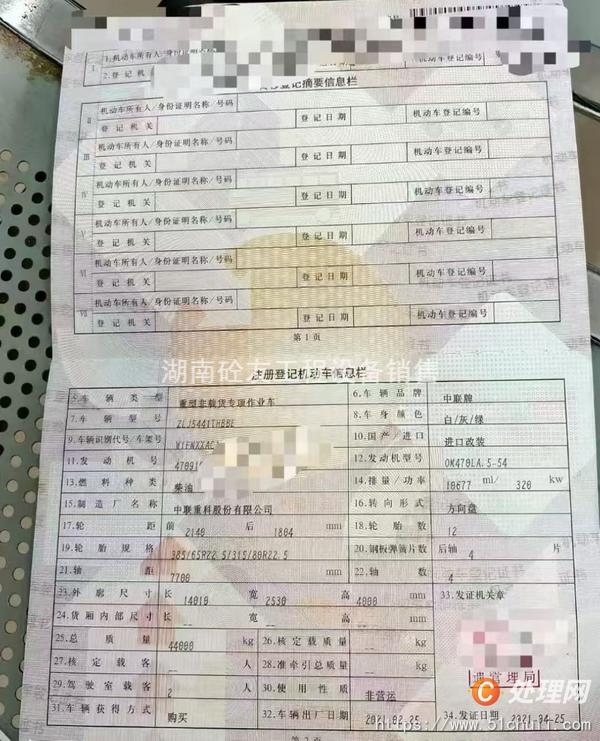 I 1.机动车所有人/身份证明名称/号码
2.登记机关 登记日期 机动车登记编号
登记摘要信息栏
II 机动车所有人/身份证明名称/号码
登记机关 登记日期 机动车登记编号
III 机动车所有人/身份证明名称/号码
登记机关 登记日期 机动车登记编号
IV 机动车所有人/身份证明名称/号码
登记机关 登记日期 机动车登记编号
V 机动车所有人/身份证明名称/号码
登记机关 登记日期 机动车登记编号
VI 机动车所有人/身份证明名称/号码
登记机关 登记日期 机动车登记编号
VII 机动车所有人/身份证明名称/号码
登记机关 登记日期 机动车登记编号
第1页
湖南砼 设备销售
注册登记机动车信息栏
5.车辆类型 重型非载货专项作业车 6.车辆品牌 中联牌
7.车辆型号 ZLJ5441THBBE 8.车身颜色 白/灰/绿
9.车辆识别代号/车架号 10.国产/进口 进口改装
11.发动机号 12.发动机型号 OM470LA.5-54
13.燃料种类 柴油 14.排量/功率 10677 ml/ 320 kw
15.制造厂名称 中联重科股份有限公司 16.转向形式 方向盘
17.轮距 前 2140 后 1804 mm 18.轮胎数 12
19.轮胎规格 385/65R22.5/315/80R22.5 20.钢板弹簧片数 后轴 4 片
21.轴距 7700 mm 22.轴数 4
23.外廓尺寸 长 14010 宽 2530 高 4000 mm 33.发证机关章
24.货厢内部尺寸 长 -- 宽 -- 高 -- mm
25.总质量 44000 kg 26.核定载质量 -- kg
27.核定载客 -- 人 28.准牵引总质量 -- kg
管理局
29.驾驶室载客 2 人 30.使用性质 非营运
31.车辆获得方式 购买 32.车辆出厂日期 2021-02-25 34.发证日期 2021-04-25
第2页
C处理网
https://www.51chuli.com